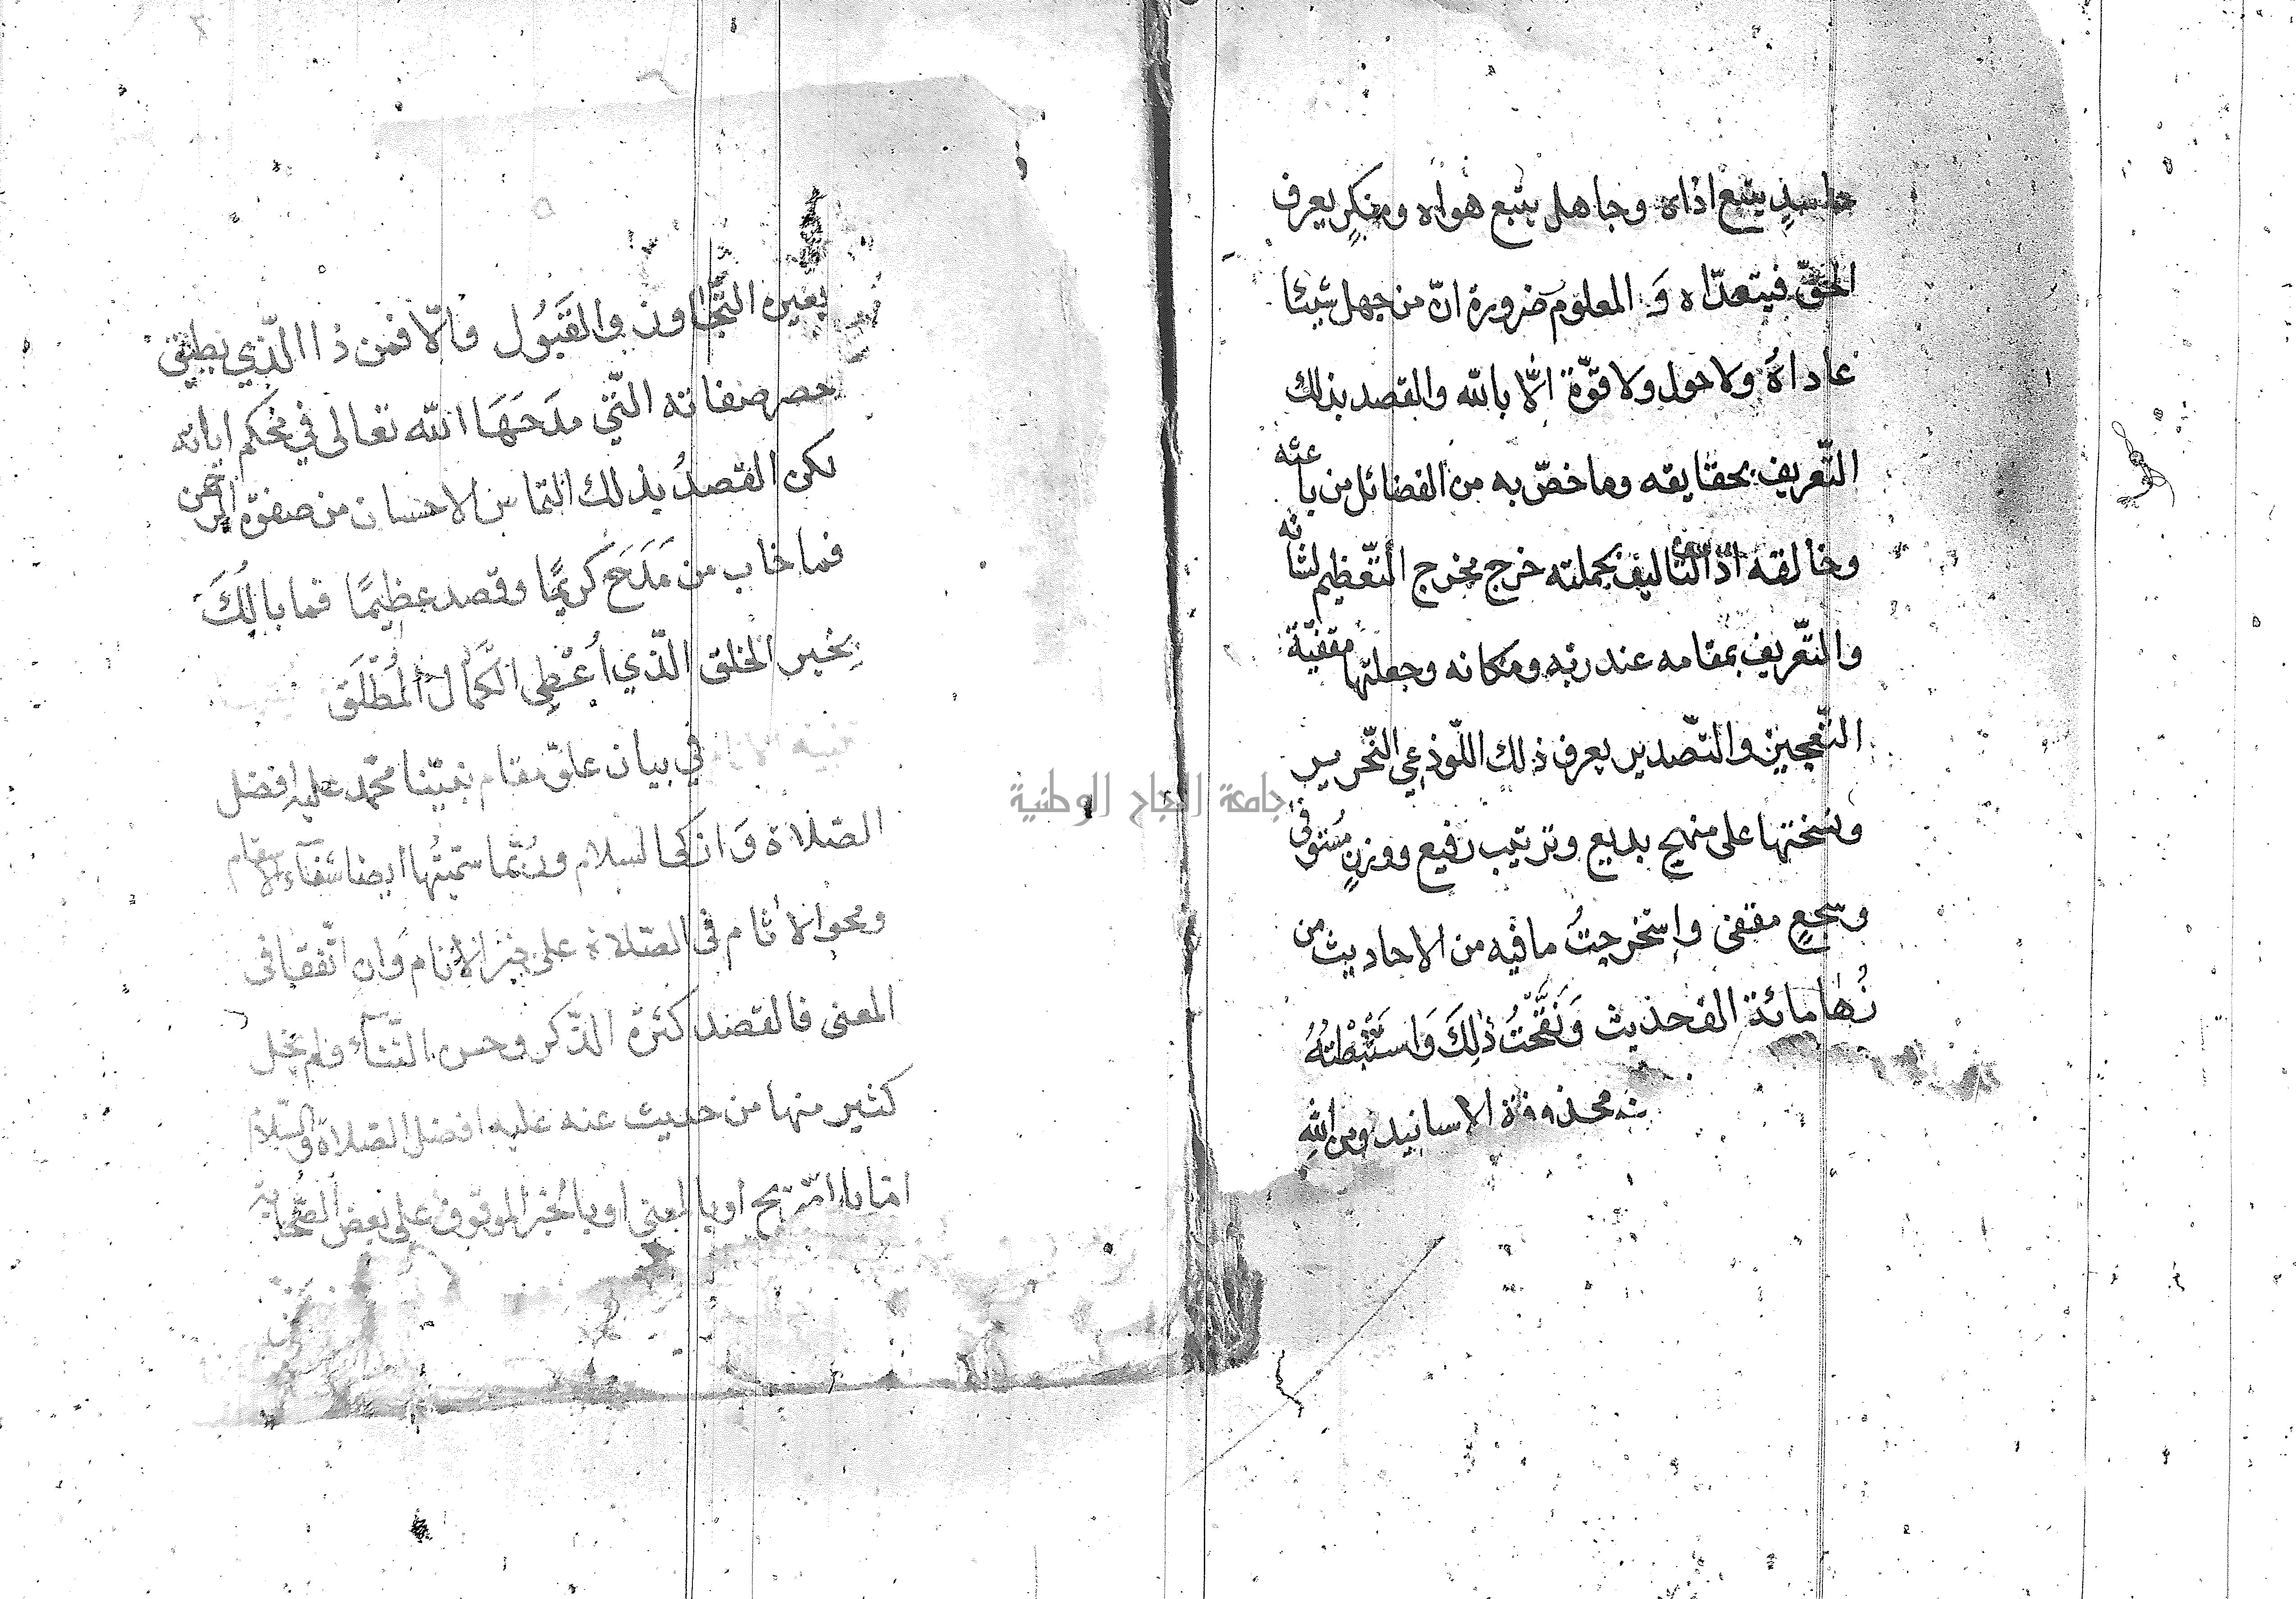 حاسدٍ يتبع اذاه وجاهل يتبع هواه ومنكرٍ يعرف
الحقّ فيتعدّاه وَ المعلوم ضرورة انّ من جهل شيئا
عاداهُ ولا حول ولا قوّة الّا بالله والقصد بذلك
التّعريف بحقايقه وما خصّ به من الفضائل من باعثه
وخالقه اذ التّاليف بجملته خرج مخرج التّعظيم لشانه
والتّعريف بمقامه عند ربّه ومكانه وجعلتها مقفيّة
التّعجيز والتّصدير يعرف ذلك اللّوذعي النّحرير
ونسختها على منهج بديع وترتيب رفيع ووزنٍ مُستوفى
وسجعٍ مقفى واستخرجتُ ما فيه من الاحاديث من
زُهَا مائة الف حديث وَنَقَّحْتُ ذلِكَ وَاستَنْبَطْتُهُ
محذوفة الاسانيد ومن اللهِ
بعين التّجاوز والقَبُول والّا فمن ذا الّذي يطيق
حصر صفاته الّتي مدَحَهَا الله تعالى في محكم اياته
لكن القصدُ بذلك التماس الاحسان من صفوة الرحمن
فما خاب من مَدَحَ كريمًا وقصد عظيمًا فما بالُكَ
بِخير الخلق الّذي اُعْطِى الكَمَال المُطْلَق
في بيان علوّ مقام نبيّنا محمّد عليه افضل
الصّلاة وَازكى السلام وربّما سمّيتُها ايضا شفاء الاسقام
ومحو الاثام في الصّلاة على خير الانام وَان اتّفقا في
المعنى فالقصد كثرة الذّكر وحسن الثّناء فلم يخل
كثير منها من حديث عنه عليه افضل الصّلاة والسّلام
امّا بالتصريح او بالمعنى او بالخبر الموقوف على بعض الصّحابة
جامعة النجاح الوطنية